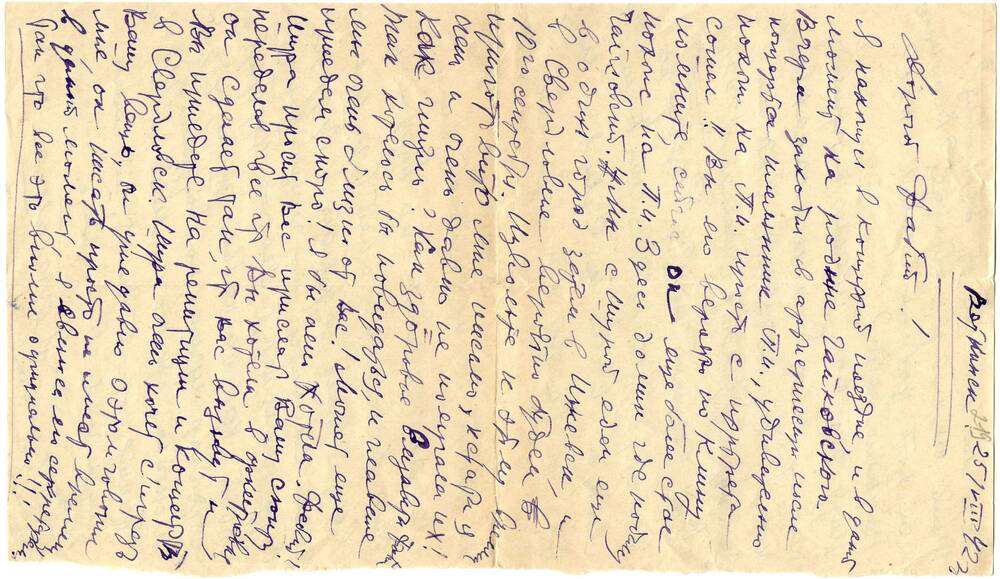 Воткинск 219 25/VIII 42 г.
Дорогой Фабий!
Я нахожусь в концертной поездке, и в данн
момент на родине Чайковского
Вчера заходил в артистическую после
концерта племянник П.И., удивительно
похож на П.И. просто с портрета
сошел!! Вы его вероятно по Клину
помните, сейчас он еще более стал
похож на П.И. Здесь домик где
Чайковский. Мы с Шурой едем еще
в один город затем в Ижевск, и
в Свердловске вероятно будем в
10го сентября. Извольте к этому времени
приготовить мне письмо, кстати я
очень и очень давно не получала их!
Как жизнь? Как здоровье Елизаветы
Так хотелось бы повидаться, и главное
мы очень близки от Вас! Может еще
приедем скоро! Я бы очень хотела, Фабий!
Шура просит Вас прислать Вашу сюиту
переделав все что Вы хотели в оркестровке
он сделает так, что Вас вызовут и
Вы приедете на репетиции и концерт
в Свердловск. Шура очень хочет сыграть
Вашу вещь, он уже давно о этом говорил
мне, он писать просто не имеет времени
в данный момент, я являюсь его секретарем.
Так что все это вполне официально!!!